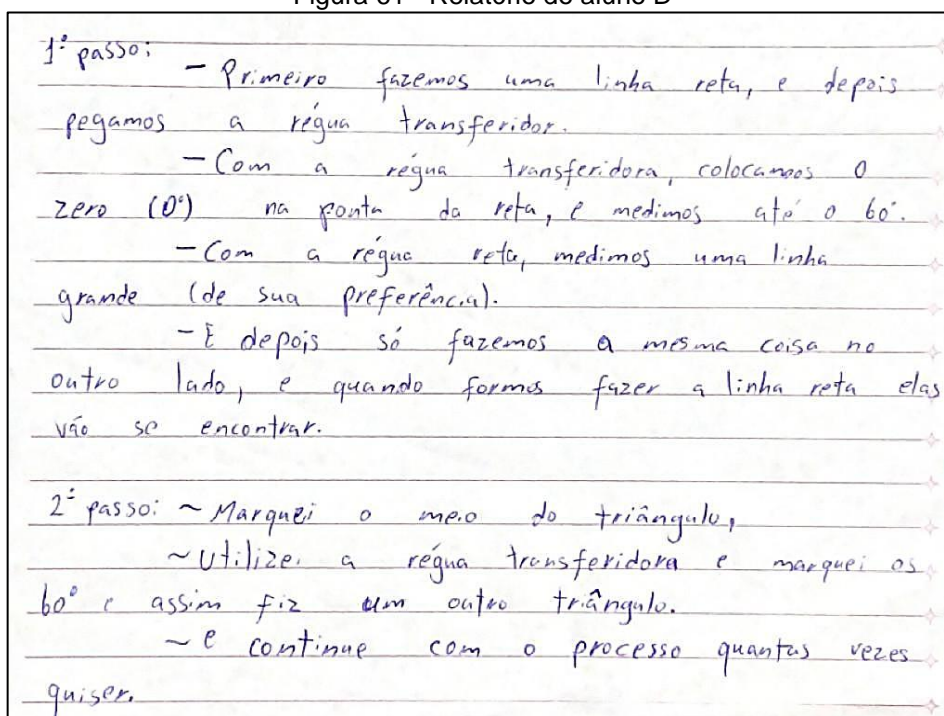 1º passo:
- Primeiro fazemos uma linha reta, e depois
pegamos a régua transferidor.
- Com a régua transferidora, colocamos o
zero (0°) na ponta da reta, e medimos até o 60°.
- Com a régua reta, medimos uma linha
grande (de sua preferência).
- E depois só fazemos a mesma coisa no
outro lado, e quando formos fazer a linha reta elas
vão se encontrar.
2º passo: ~ Marquei o meio do triângulo,
~ Utilizei a régua transferidora e marquei os
60° e assim fiz um outro triângulo.
~ e continue com o processo quantas vezes
quiser.